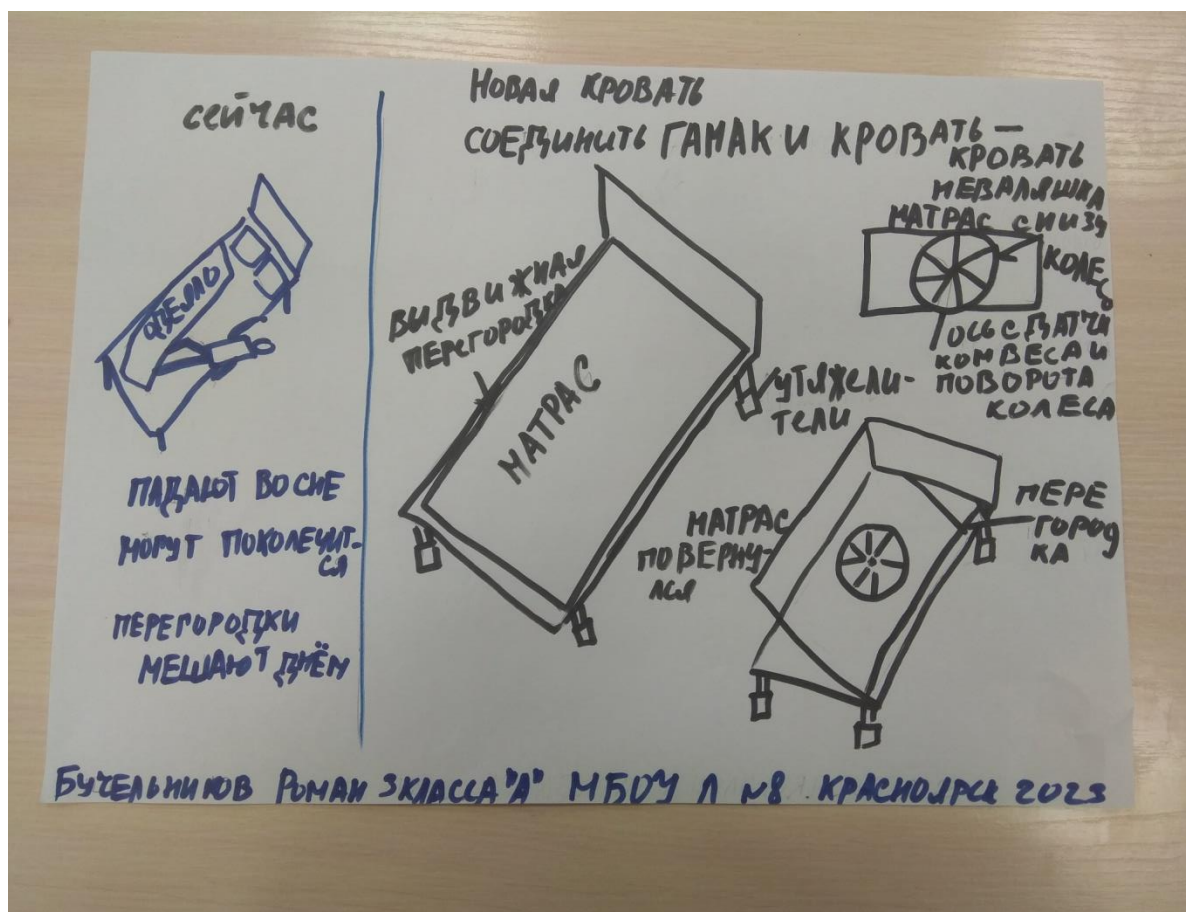 СЕЙЧАС
ОДЕЯЛО
ПАДАЮТ ВО СНЕ
МОГУТ ПОКОЛЕЧИТ-
СЯ
ПЕРЕГОРОДКИ
МЕШАЮТ ДНЁМ
НОВАЯ КРОВАТЬ
СОЕДИНИТЬ ГАМАК И КРОВАТЬ —
КРОВАТЬ
НЕВАЛЯШКА
МАТРАС СНИЗУ
КОЛЕСО
ОСЬ С ДАТЧИ
КОМ ВЕСА И
ПОВОРОТА
КОЛЕСА
ВЫДВИЖНАЯ
ПЕРЕГОРОДКА
МАТРАС
УТЯЖЕЛИ-
ТЕЛИ
МАТРАС
ПОВЕРНУ-
ЛСЯ
ПЕРЕ
ГОРОД
КА
БУЧЕЛЬНИКОВ РОМАН 3 КЛАССА "А" МБОУ Л №8 КРАСНОЯРСК 2023